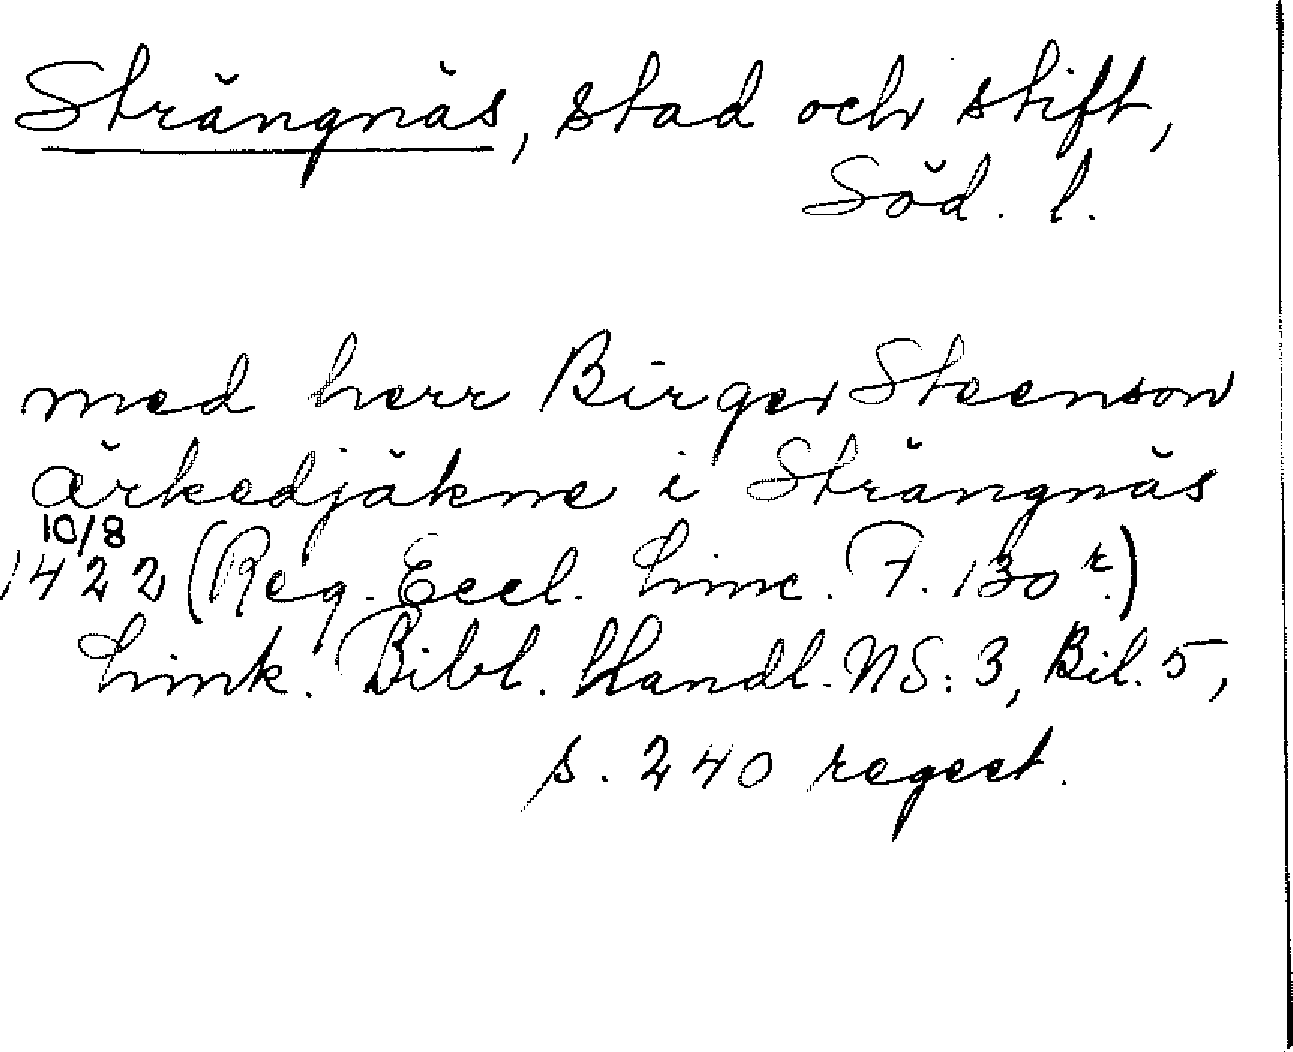 Strängnäs, stad och stift,
Söd. l.
med herr Birger Steenson
ärkedjäkne i Strängnäs
10/8
1422 (Reg. Eccl. Linc. F. 130 r.)
Link. Bibl. Handl. NS: 3, Bil. 5,
s. 240 regest.